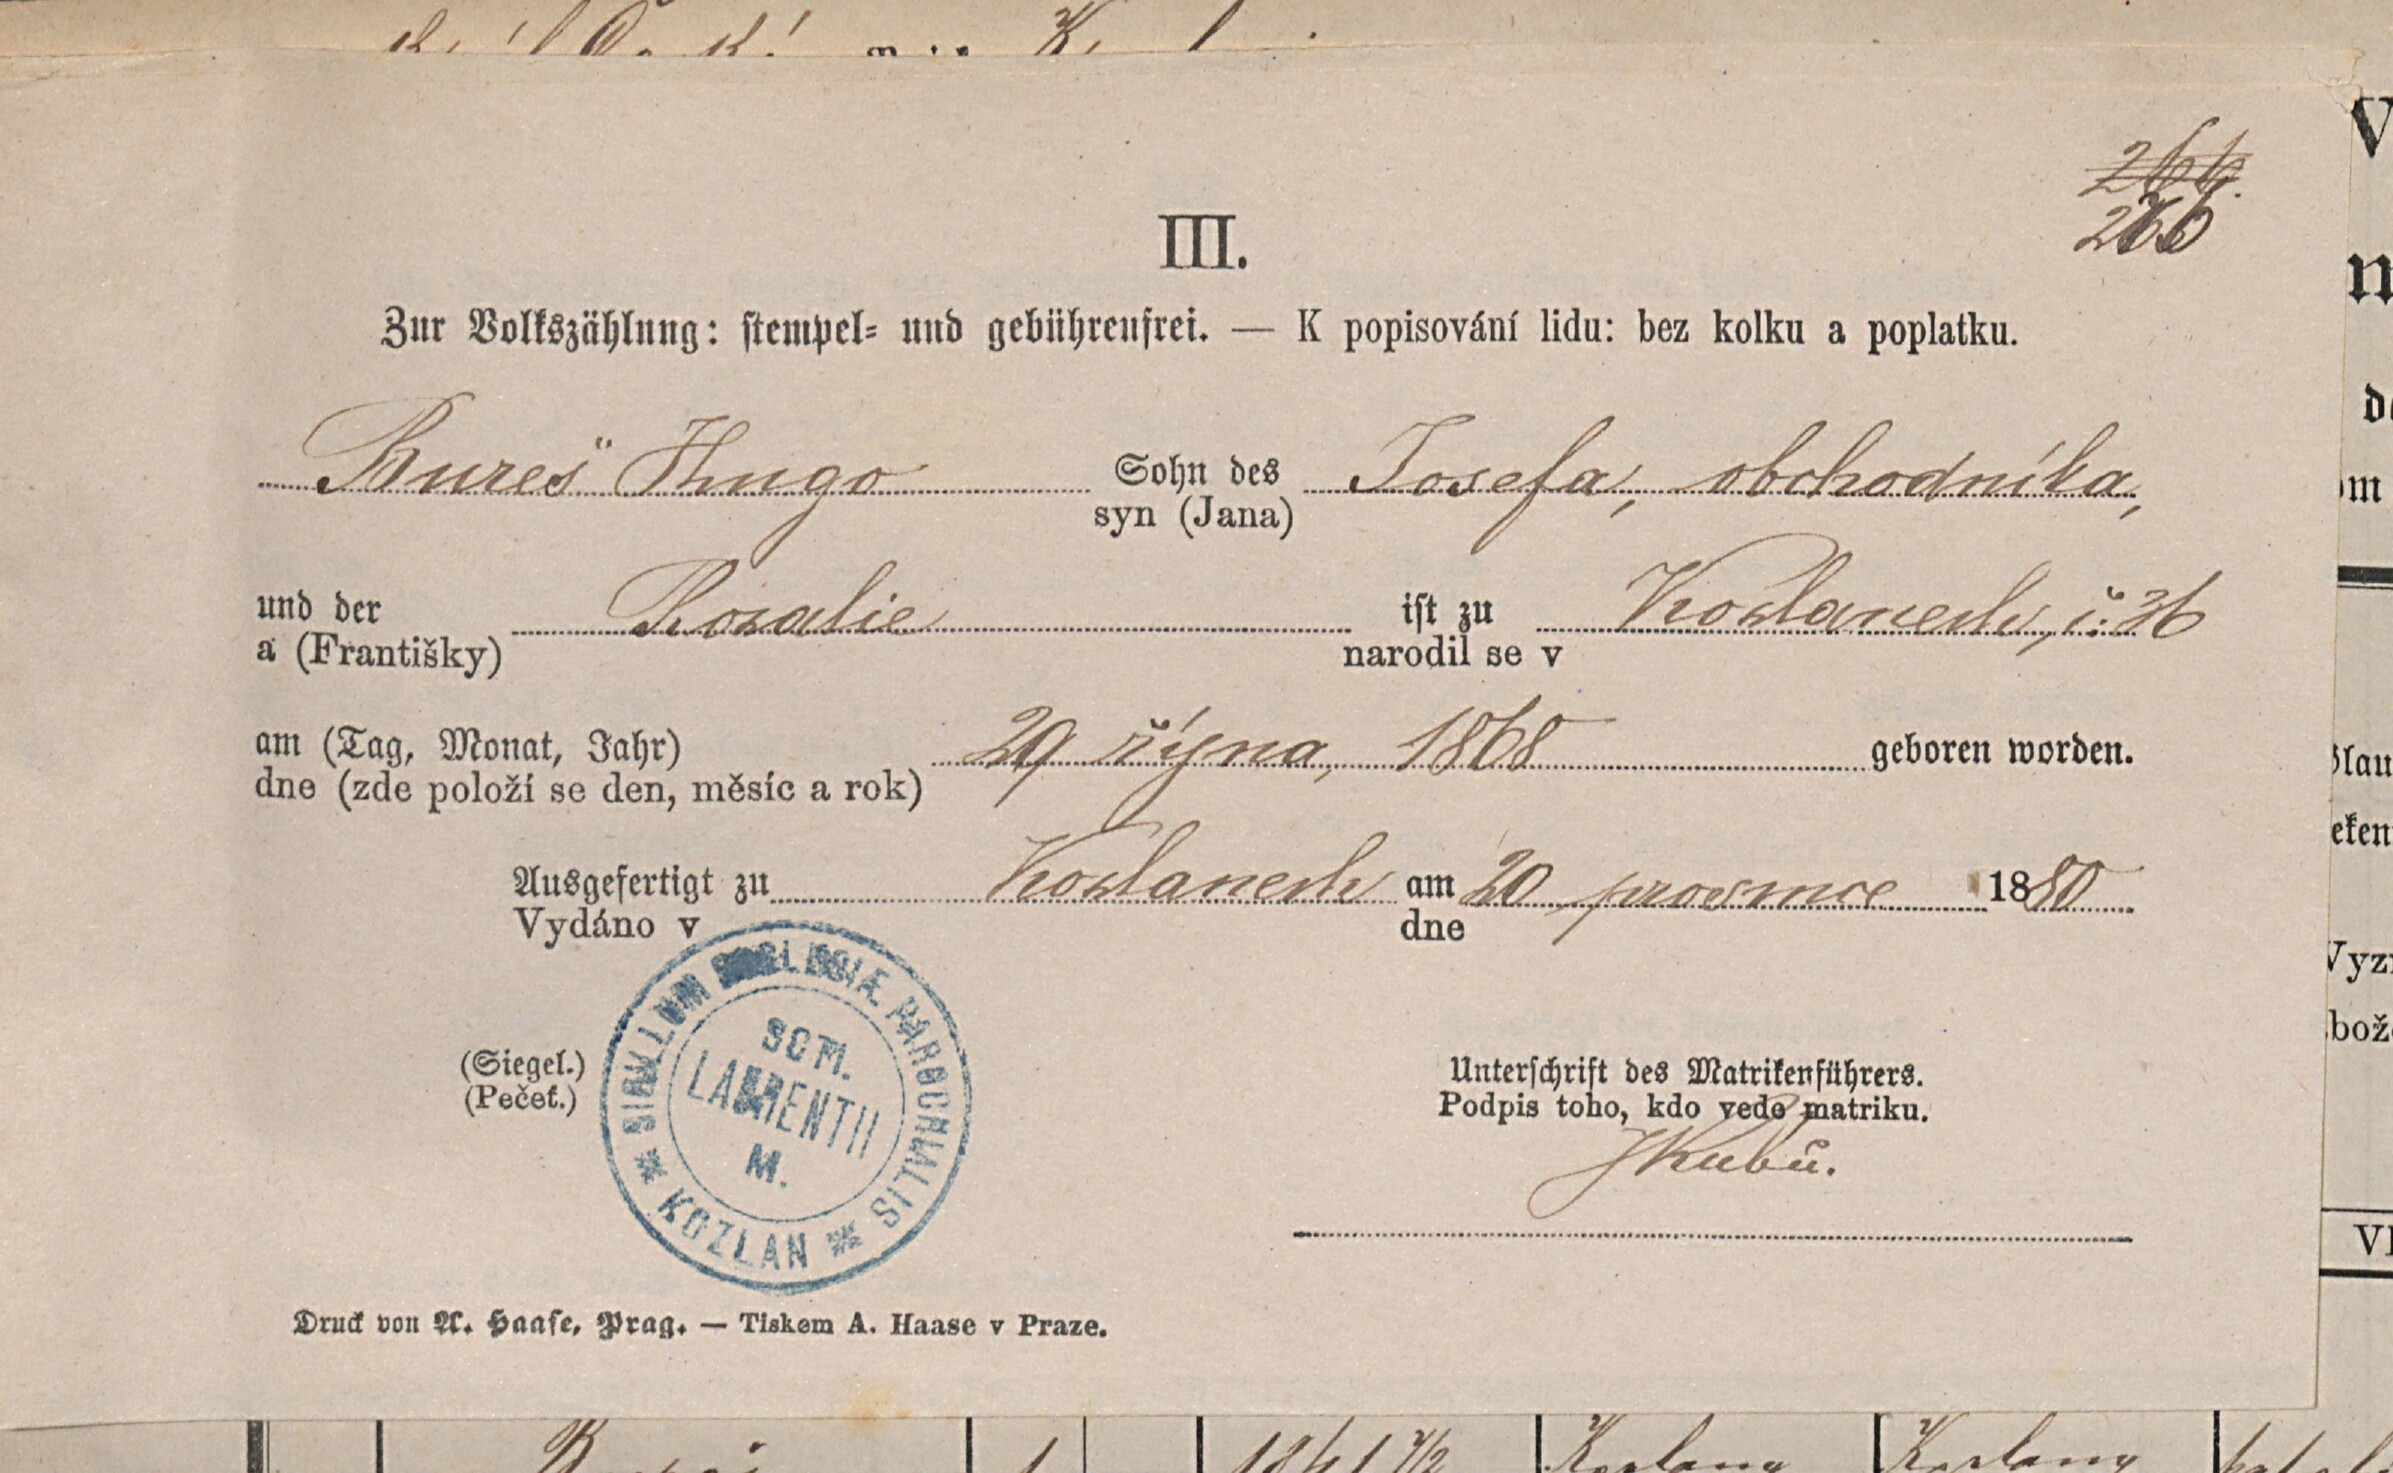 III.
Zur Volkszählung: stempel- und gebührenfrei. — K popisování lidu: bez kolku a poplatku.
Bureš Hugo Sohn des Josefa, obchodníka,
syn (Jana)
und der Rosalie ist zu Kozlanech, č. 36
a (Františky) narodil se v
am (Tag, Monat, Jahr) 29 října, 1868 geboren worden.
dne (zde položí se den, měsíc a rok)
Ausgefertigt zu Kozlanech am 20 prosince 1880
Vydáno v dne
SIGILLUM ECCLESIÆ PAROCHIALIS
SCTI.
LAURENTII
M.
KOZLAN
(Siegel.)
(Pečeť.)
Unterschrift des Matrikenführers.
Podpis toho, kdo vede matriku.
JKubů.
Druck von A. Haase, Prag. — Tiskem A. Haase v Praze.